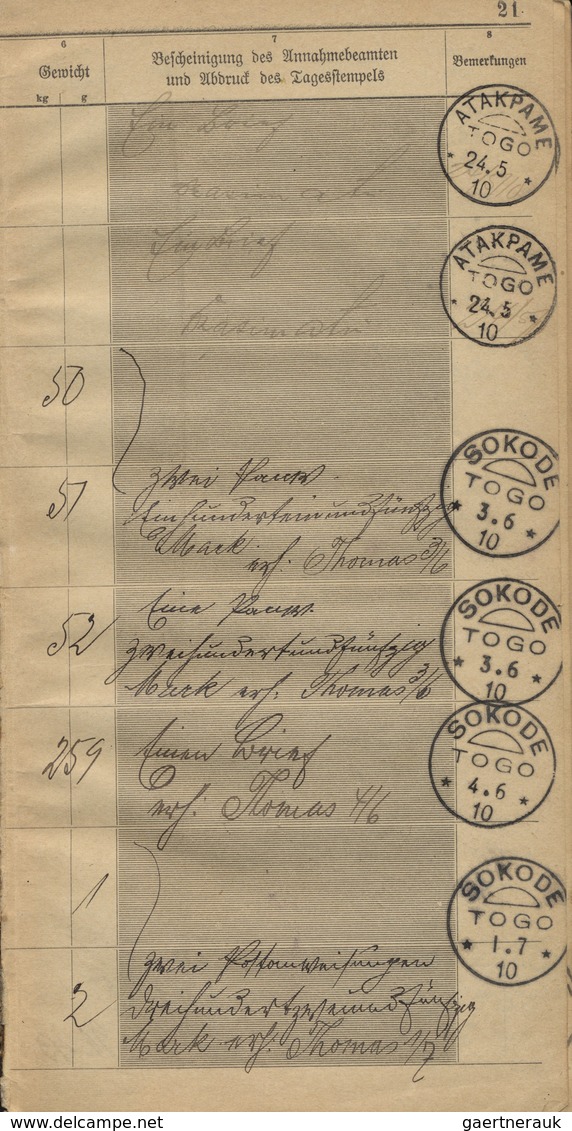 21
6
7
8
Gewicht
Bescheinigung des Annahmebeamten
und Abdruck des Tagesstempels
Bemerkungen
kg g
Ein Brief
ATAKPAME
TOGO
24.5
10
Ein Brief
ATAKPAME
TOGO
24.5
10
50
51
zwei Panw.
Einhunderteinundfünfzig
Mark
erh. Thomas 3/6
SOKODE
TOGO
3.6
10
52
Eine Panw.
zweihundertundfünfzig
Mark erh. Thomas 3/6
SOKODE
TOGO
3.6
10
259
Einen Brief
erh. Thomas 4/6
SOKODE
TOGO
4.6
10
1
SOKODE
TOGO
1.7
10
2
zwei Postanweisungen
dreihundertzweiundfünfzig
Mark erh. Thomas 1/7
www.delcampe.net
gaertnerauk